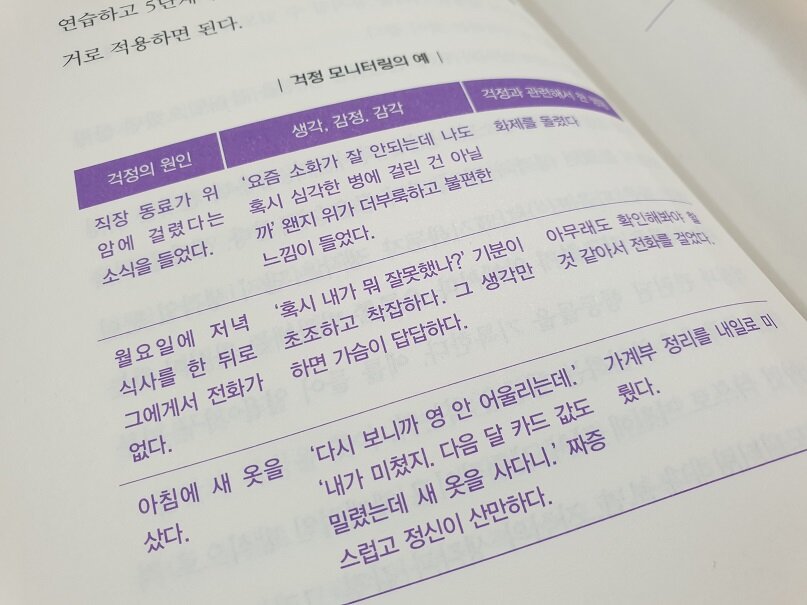 연습하고 5단계
거로 적용하면 된다.
| 걱정 모니터링의 예 |
걱정의 원인
생각, 감정, 감각
걱정과 관련해서 한
직장 동료가 위
암에 걸렸다는
소식을 들었다.
'요즘 소화가 잘 안되는데 나도
혹시 심각한 병에 걸린 건 아닐
까' 왠지 위가 더부룩하고 불편한
느낌이 들었다.
화제를 돌렸다
월요일에 저녁
식사를 한 뒤로
그에게서 전화가
없다.
'혹시 내가 뭐 잘못했나?' 기분이
초조하고 착잡하다. 그 생각만
하면 가슴이 답답하다.
아무래도 확인해봐야 할
것 같아서 전화를 걸었다.
아침에 새 옷을
샀다.
'다시 보니까 영 안 어울리는데.'
'내가 미쳤지. 다음 달 카드 값도
밀렸는데 새 옷을 사다니.' 짜증
스럽고 정신이 산만하다.
가계부 정리를 내일로 미
뤘다.